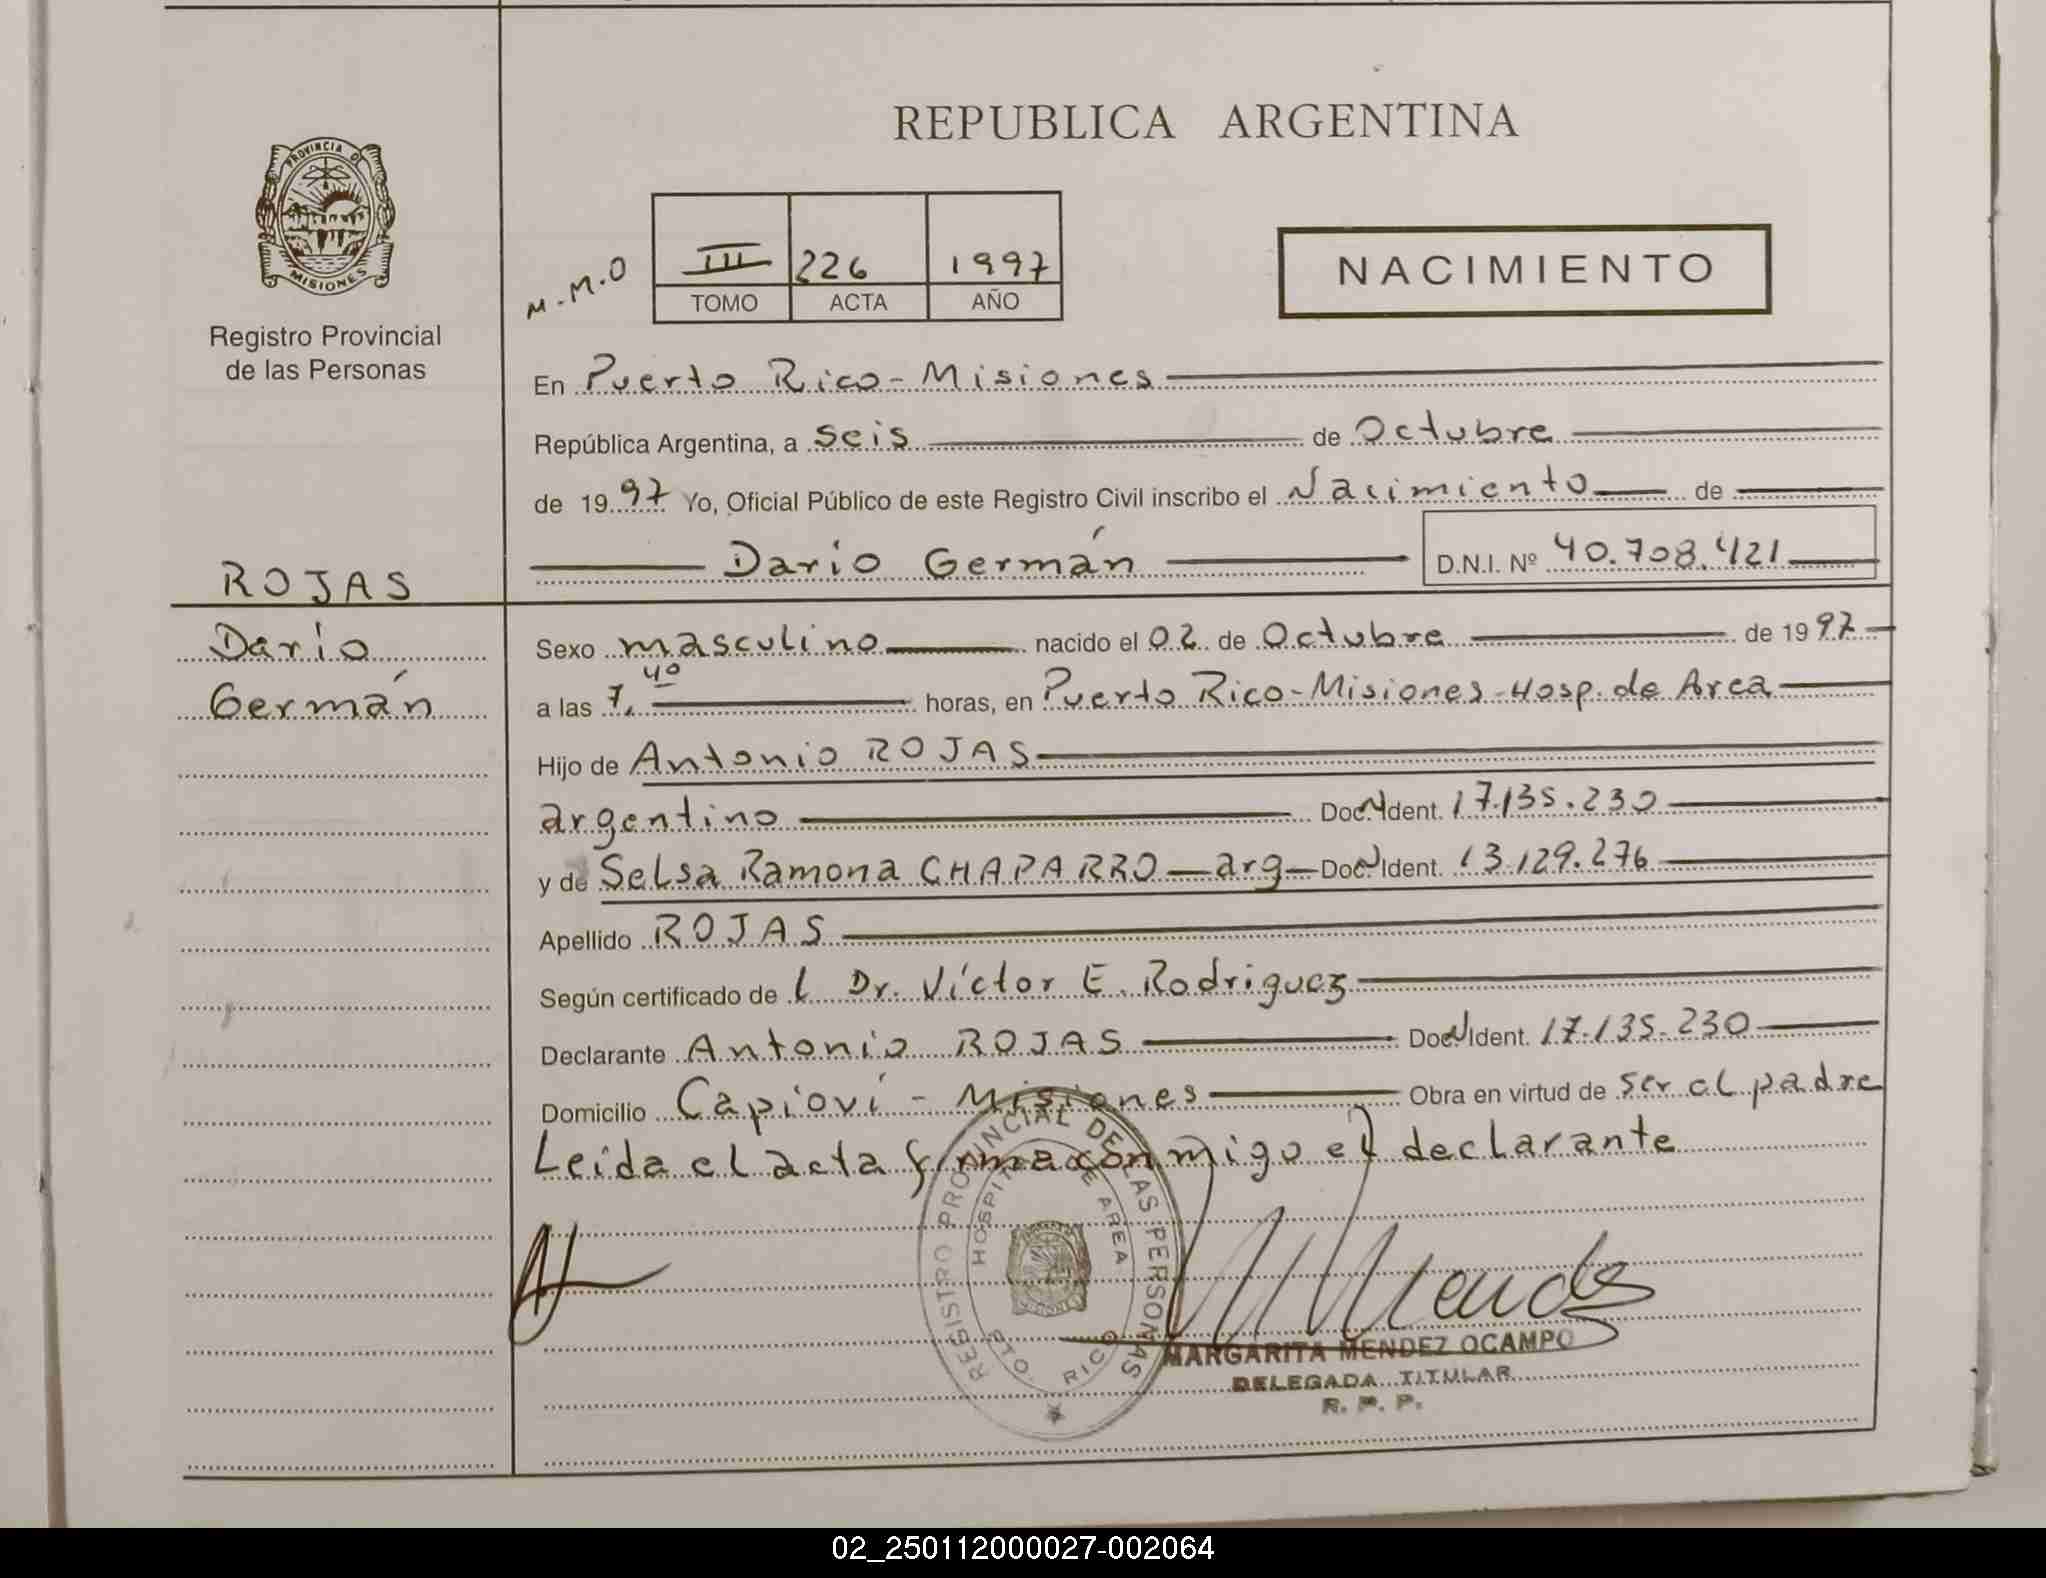 REPUBLICA ARGENTINA
PROVINCIA DE
MISIONES
Registro Provincial
de las Personas
M.M.O
III 226 1997
TOMO ACTA AÑO
NACIMIENTO
En Puerto Rico - Misiones
República Argentina, a seis de Octubre
de 1997 Yo, Oficial Público de este Registro Civil inscribo el Nacimiento de
Darío Germán D.N.I. Nº 40.708.421
ROJAS
Darío
Germán
Sexo masculino nacido el 02 de Octubre de 1997
a las 7,40 horas, en Puerto Rico - Misiones - Hosp. de Area
Hijo de Antonio ROJAS
argentino Doc. N Ident. 17.135.230
y de Selsa Ramona CHAPARRO - arg - Doc. N Ident. 13.129.276
Apellido ROJAS
Según certificado de l Dr. Víctor E. Rodriguez
Declarante Antonio ROJAS Doc. N Ident. 17.135.230
Domicilio Capioví - Misiones Obra en virtud de ser el padre
Leida el acta firma conmigo el declarante
REGISTRO PROVINCIAL DE LAS PERSONAS
HOSPITAL DE AREA
PTO. RICO
MARGARITA MENDEZ OCAMPO
DELEGADA TITULAR
R. P. P.
02_250112000027-002064